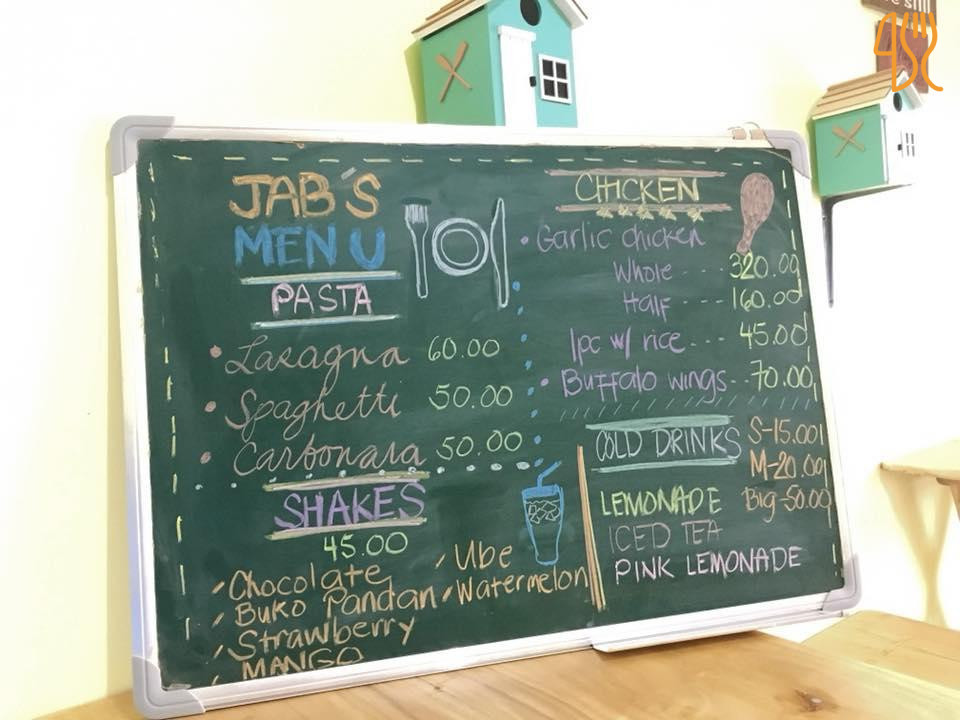 JAB'S
MENU
PASTA
Lasagna 60.00
Spaghetti 50.00
Carbonara 50.00
SHAKES
45.00
Chocolate
Buko Pandan
Strawberry
MANGO
Ube
Watermelon
CHICKEN
Garlic chicken
Whole --- 320.00
Half --- 160.00
1pc w/ rice --- 45.00
Buffalo wings -- 70.00
COLD DRINKS
S-15.00
M-20.00
Big-50.00
LEMONADE
ICED TEA
PINK LEMONADE
still